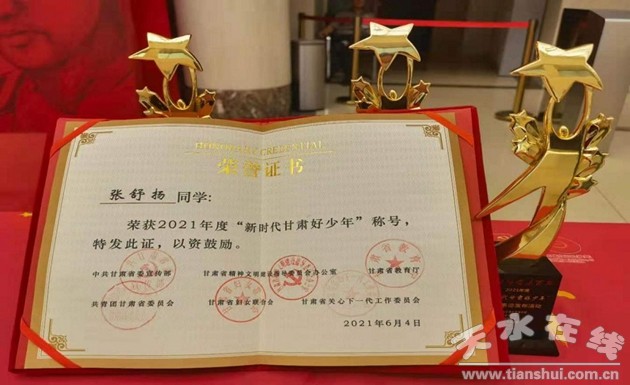 HONORARY CREDENTIAL
荣誉证书
张舒扬 同学:
荣获2021年度“新时代甘肃好少年”称号,
特发此证,以资鼓励。
中共甘肃省委宣传部 甘肃省精神文明建设指导委员会办公室 甘肃省教育厅
共青团甘肃省委员会 甘肃省妇女联合会 甘肃省关心下一代工作委员会
2021年6月4日
天水在线
www.tianshui.com.cn